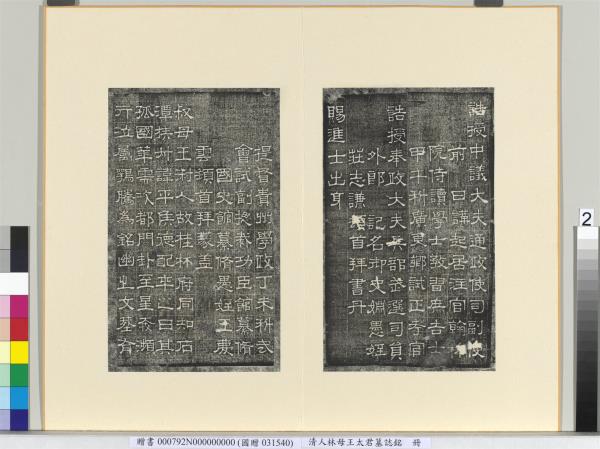 誥授中議大夫通政使司副使
前 日講起居注官翰林
院侍讀學士教習庶吉士
甲午科廣東鄉試正考官
誥授奉政大夫兵部武選司員
外郎 記名御史姻愚姪
莊志謙頓首拜書丹
賜進士出身
提督貴州學政丁未科武
會試副總裁功臣館纂修
國史館纂修愚姪王慶
雲頓首拜篆蓋
叔母王淑人故桂林府同知石
潭林諱平侯德配卒之日其
孤國華需次都門訃至星奔瀕
行泣屬鶚騰為銘幽之文墓有
2
贈書 000792N000000000 (國贈 031540) 清人林母王太君墓誌銘 冊